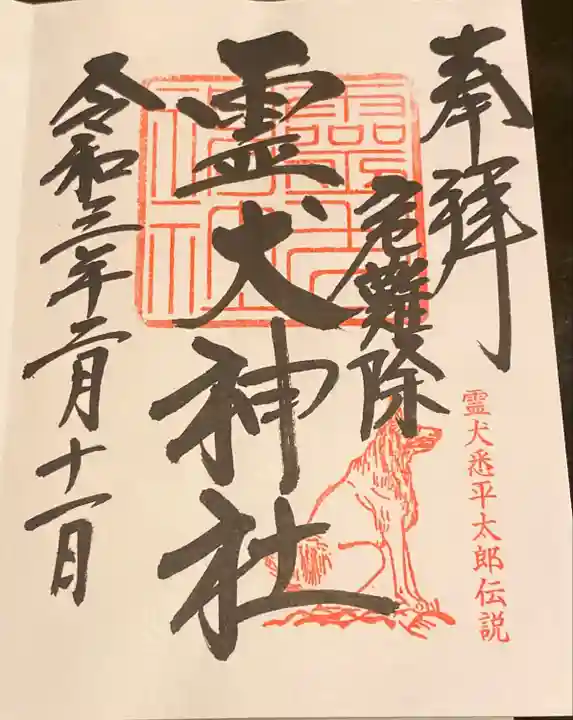 奉拝
危難除
霊犬神社
令和三年二月十一日
霊犬悉平太郎伝説